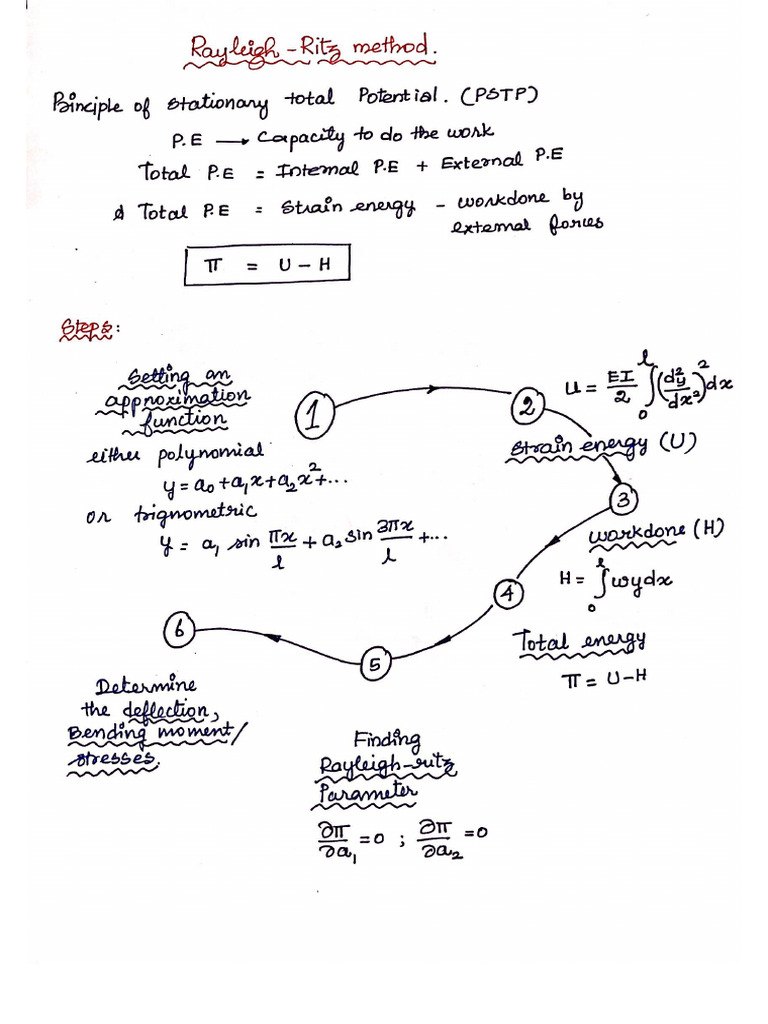 Rayleigh-Ritz method.
Principle of stationary total Potential. (PSTP)
P.E → Capacity to do the work
Total P.E = Internal P.E + External P.E
Total P.E = Strain energy - workdone by
external forces
π = U - H
Steps:
Setting an
approximation
function
either polynomial
y = a₀ + a₁x + a₂x² + ...
or trignometric
y = a₁ sin πx/l + a₂ sin 3πx/l + ...
1
2
U = EI/2 ∫₀ˡ (d²y/dx²)² dx
Strain energy (U)
3
workdone (H)
H = ∫₀ˡ wydx
4
Total energy
π = U - H
5
Finding
Rayleigh-ritz
Parameter
∂π/∂a₁ = 0 ; ∂π/∂a₂ = 0
6
Determine
the deflection,
Bending moment/
stresses.